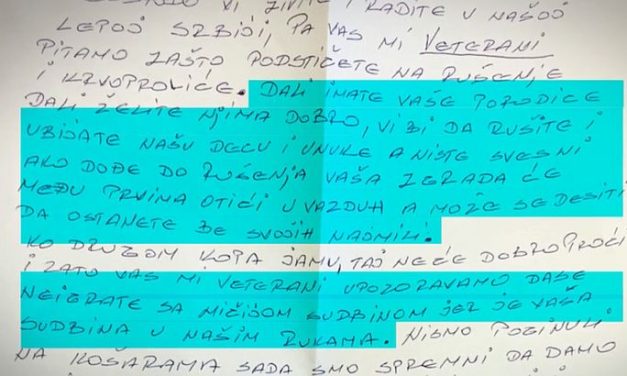 VI ŽIVITE I RADITE U NAŠOJ
LEPOJ SRBIJI, PA VAS MI VETERANI
PITAMO ZAŠTO PODSTIČETE NA RUŠENJE
I KRVOPROLIĆE. DALI IMATE VAŠE PORODICE
DALI ŽELITE NJIMA DOBRO, VI BI DA RUŠITE I
UBIJATE NAŠU DECU I UNUKE A NISTE SVESNI
AKO DOĐE DO RUŠENJA VAŠA ZGRADA ĆE
MEĐU PRVIMA OTIĆI U VAZDUH A MOŽE SE DESITI
DA OSTANETE BE SVOJIH NAJMILI.
KO DRUGOM KOPA JAMU, TAJ NEĆE DOBRO PROĆI
I ZATO VAS MI VETERANI UPOZORAVAMO DASE
NEIGRATE SA NIČIJOM SUDBINOM JER JE VAŠA
SUDBINA U NAŠIM RUKAMA. NISMO POGINULI
NA KOŠARAMA SADA SMO SPREMNI DA DAMO